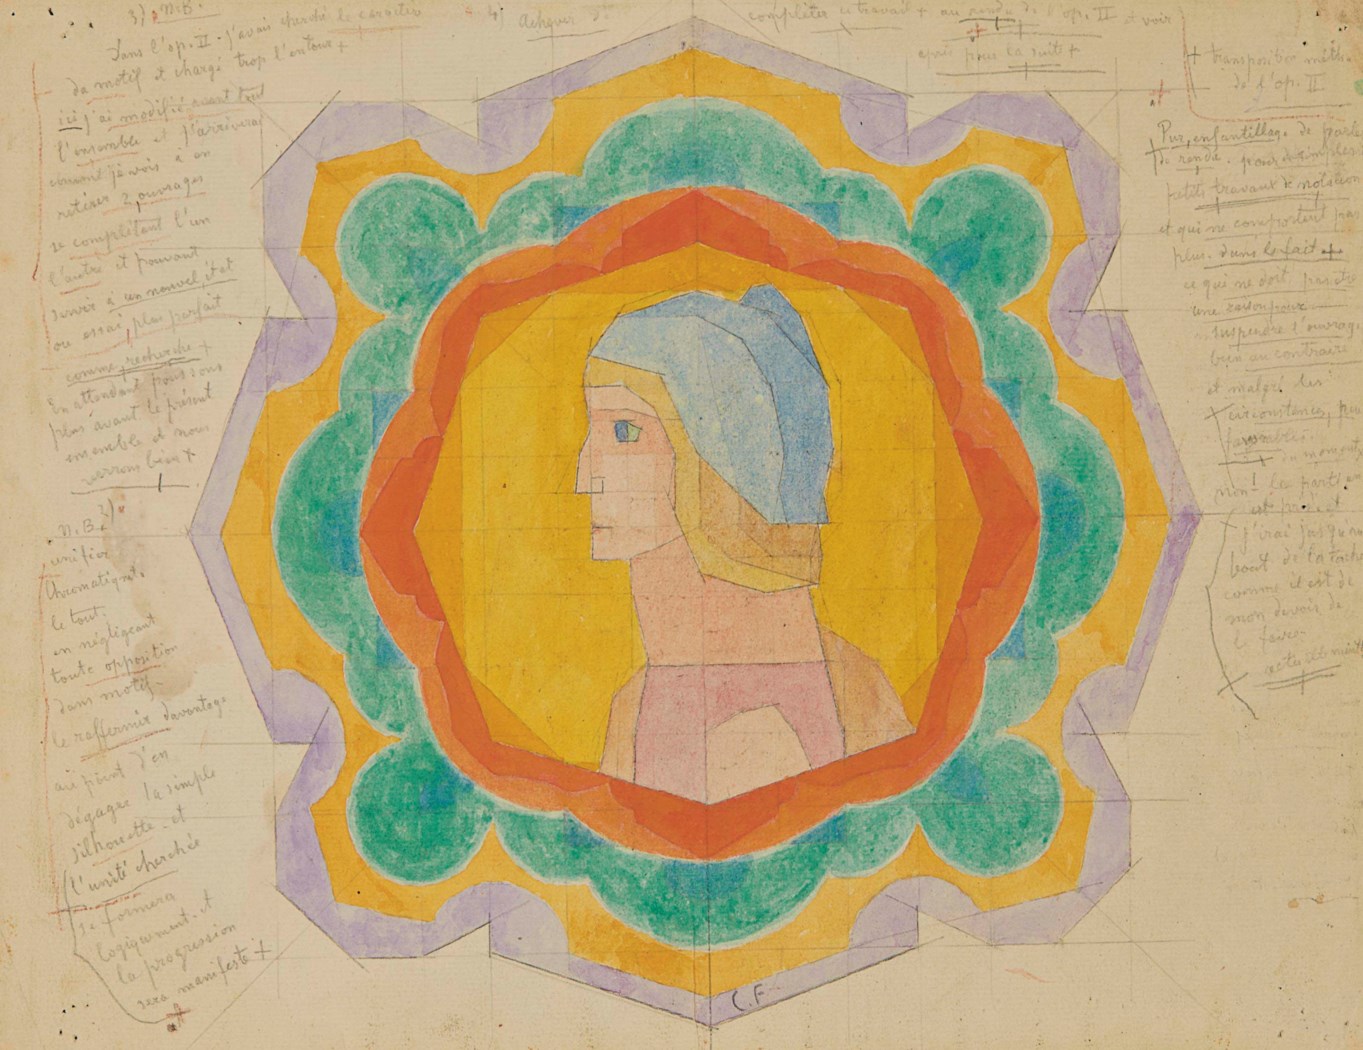 3) N.B.
Dans l'op. II j'avais cherché le caractère
du motif et chargé trop l'entour +
ici j'ai modifié avant tout
l'ensemble et j'arriverai
comme je vois à en
retirer 2 ouvrages
se complétant l'un
l'autre et pouvant
servir à un nouvel état
ou essai, plus parfait
comme recherche +
En attendant poussons
plus avant le présent
ensemble et nous
verrons bien +
N.B. 2)
unifier
Chromatiqmt.
le tout.
en négligeant
toute opposition
dans motif.
le raffermir davantage
au point d'en
dégager la simple
silhouette. et
l'unité cherchée
se formera
logiquement. et
la progression
sera manifeste +
4) Achever
compléter ce travail + au rendu de l'op. II et voir
après pour la suite +
+ transposition méth.
de l'op. II
Pur enfantillage de parler
de rendu. pour de simples
petits travaux de notation
et qui ne comportent pas
plus. dans le fait +
ce qui ne doit pas être
une raison pour
suspendre l'ouvrage
bien au contraire
et malgré les
circonstances, peu
favorables.
du moment
non! les parti
est pris et
j'irai jusqu'au
bout de la tâche
comme il est de
mon devoir de
le faire.
C.F